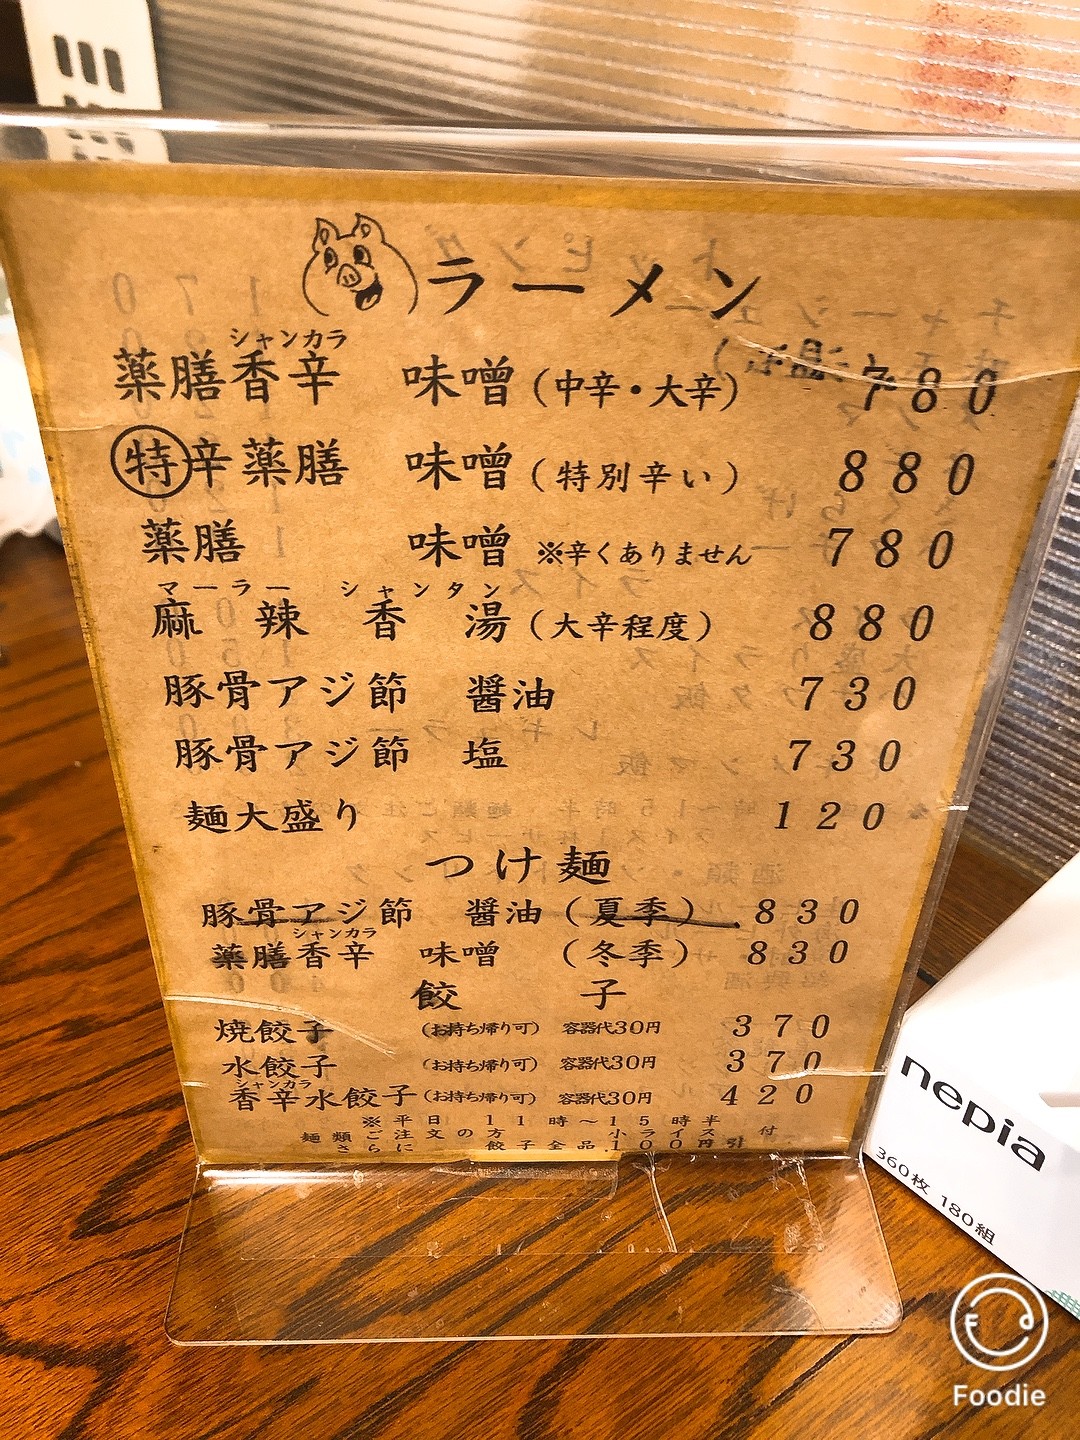 ラーメン
シャンカラ
薬膳香辛 味噌(中辛・大辛) 780
特辛薬膳 味噌(特別辛い) 880
薬膳 味噌 ※辛くありません 780
マーラー シャンタン
麻辣香湯(大辛程度) 880
豚骨アジ節 醤油 730
豚骨アジ節 塩 730
麺大盛り 120
つけ麺
豚骨アジ節 醤油(夏季) 830
シャンカラ
薬膳香辛 味噌 (冬季) 830
餃子
焼餃子 (お持ち帰り可) 容器代30円 370
水餃子 (お持ち帰り可) 容器代30円 370
シャンカラ
香辛水餃子(お持ち帰り可) 容器代30円 420
※平日 11時~15時半
麺類ご注文の方 小ライス 付
さらに 餃子全品100円引
nepia
360枚 180組
Foodie